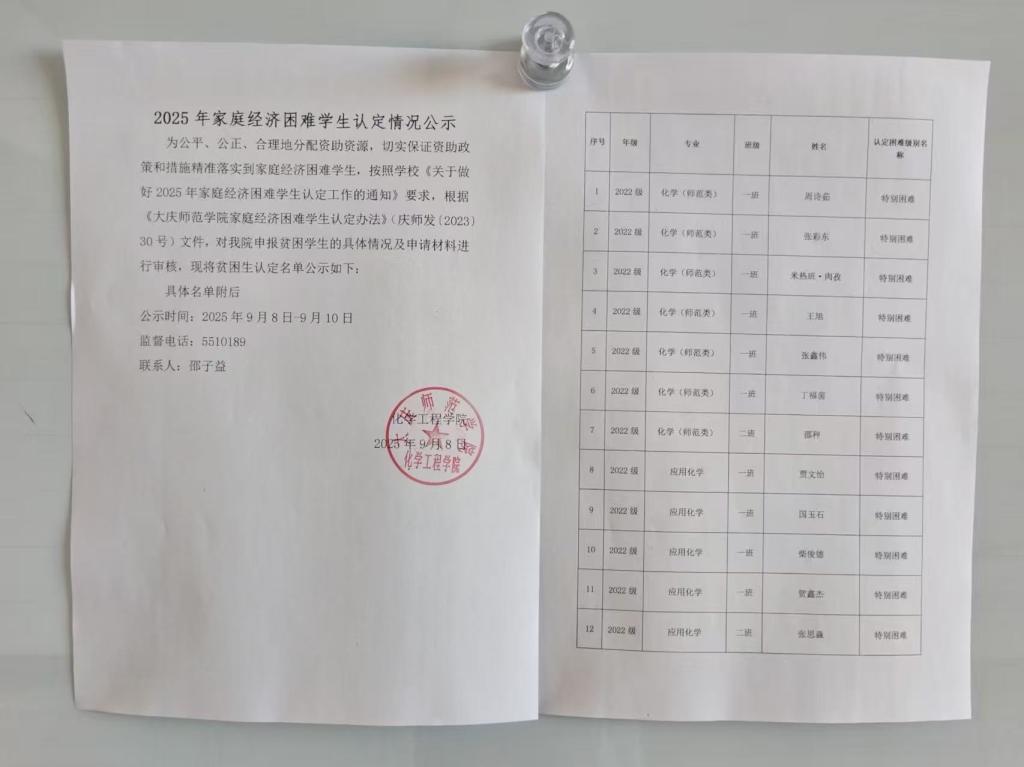 2025 年家庭经济困难学生认定情况公示
为公平、公正、合理地分配资助资源，切实保证资助政
策和措施精准落实到家庭经济困难学生，按照学校《关于做
好 2025 年家庭经济困难学生认定工作的通知》要求，根据
《大庆师范学院家庭经济困难学生认定办法》（庆师发〔2023〕
30 号）文件，对我院申报贫困学生的具体情况及申请材料进
行审核，现将贫困生认定名单公示如下：
具体名单附后
公示时间：2025 年 9 月 8 日-9 月 10 日
监督电话：5510189
联系人：邵子益
化学工程学院
2025 年 9 月 8 日
大庆师范学院
化学工程学院
序号 年级 专业 班级 姓名 认定困难级别名称
1 2022 级 化学（师范类） 一班 周诗茹 特别困难
2 2022 级 化学（师范类） 一班 张彩东 特别困难
3 2022 级 化学（师范类） 一班 米热班·肉孜 特别困难
4 2022 级 化学（师范类） 一班 王旭 特别困难
5 2022 级 化学（师范类） 一班 张鑫伟 特别困难
6 2022 级 化学（师范类） 一班 丁福茵 特别困难
7 2022 级 化学（师范类） 二班 邵种 特别困难
8 2022 级 应用化学 一班 贾文怡 特别困难
9 2022 级 应用化学 一班 国玉石 特别困难
10 2022 级 应用化学 一班 柴俊德 特别困难
11 2022 级 应用化学 一班 贺鑫杰 特别困难
12 2022 级 应用化学 二班 张思淼 特别困难